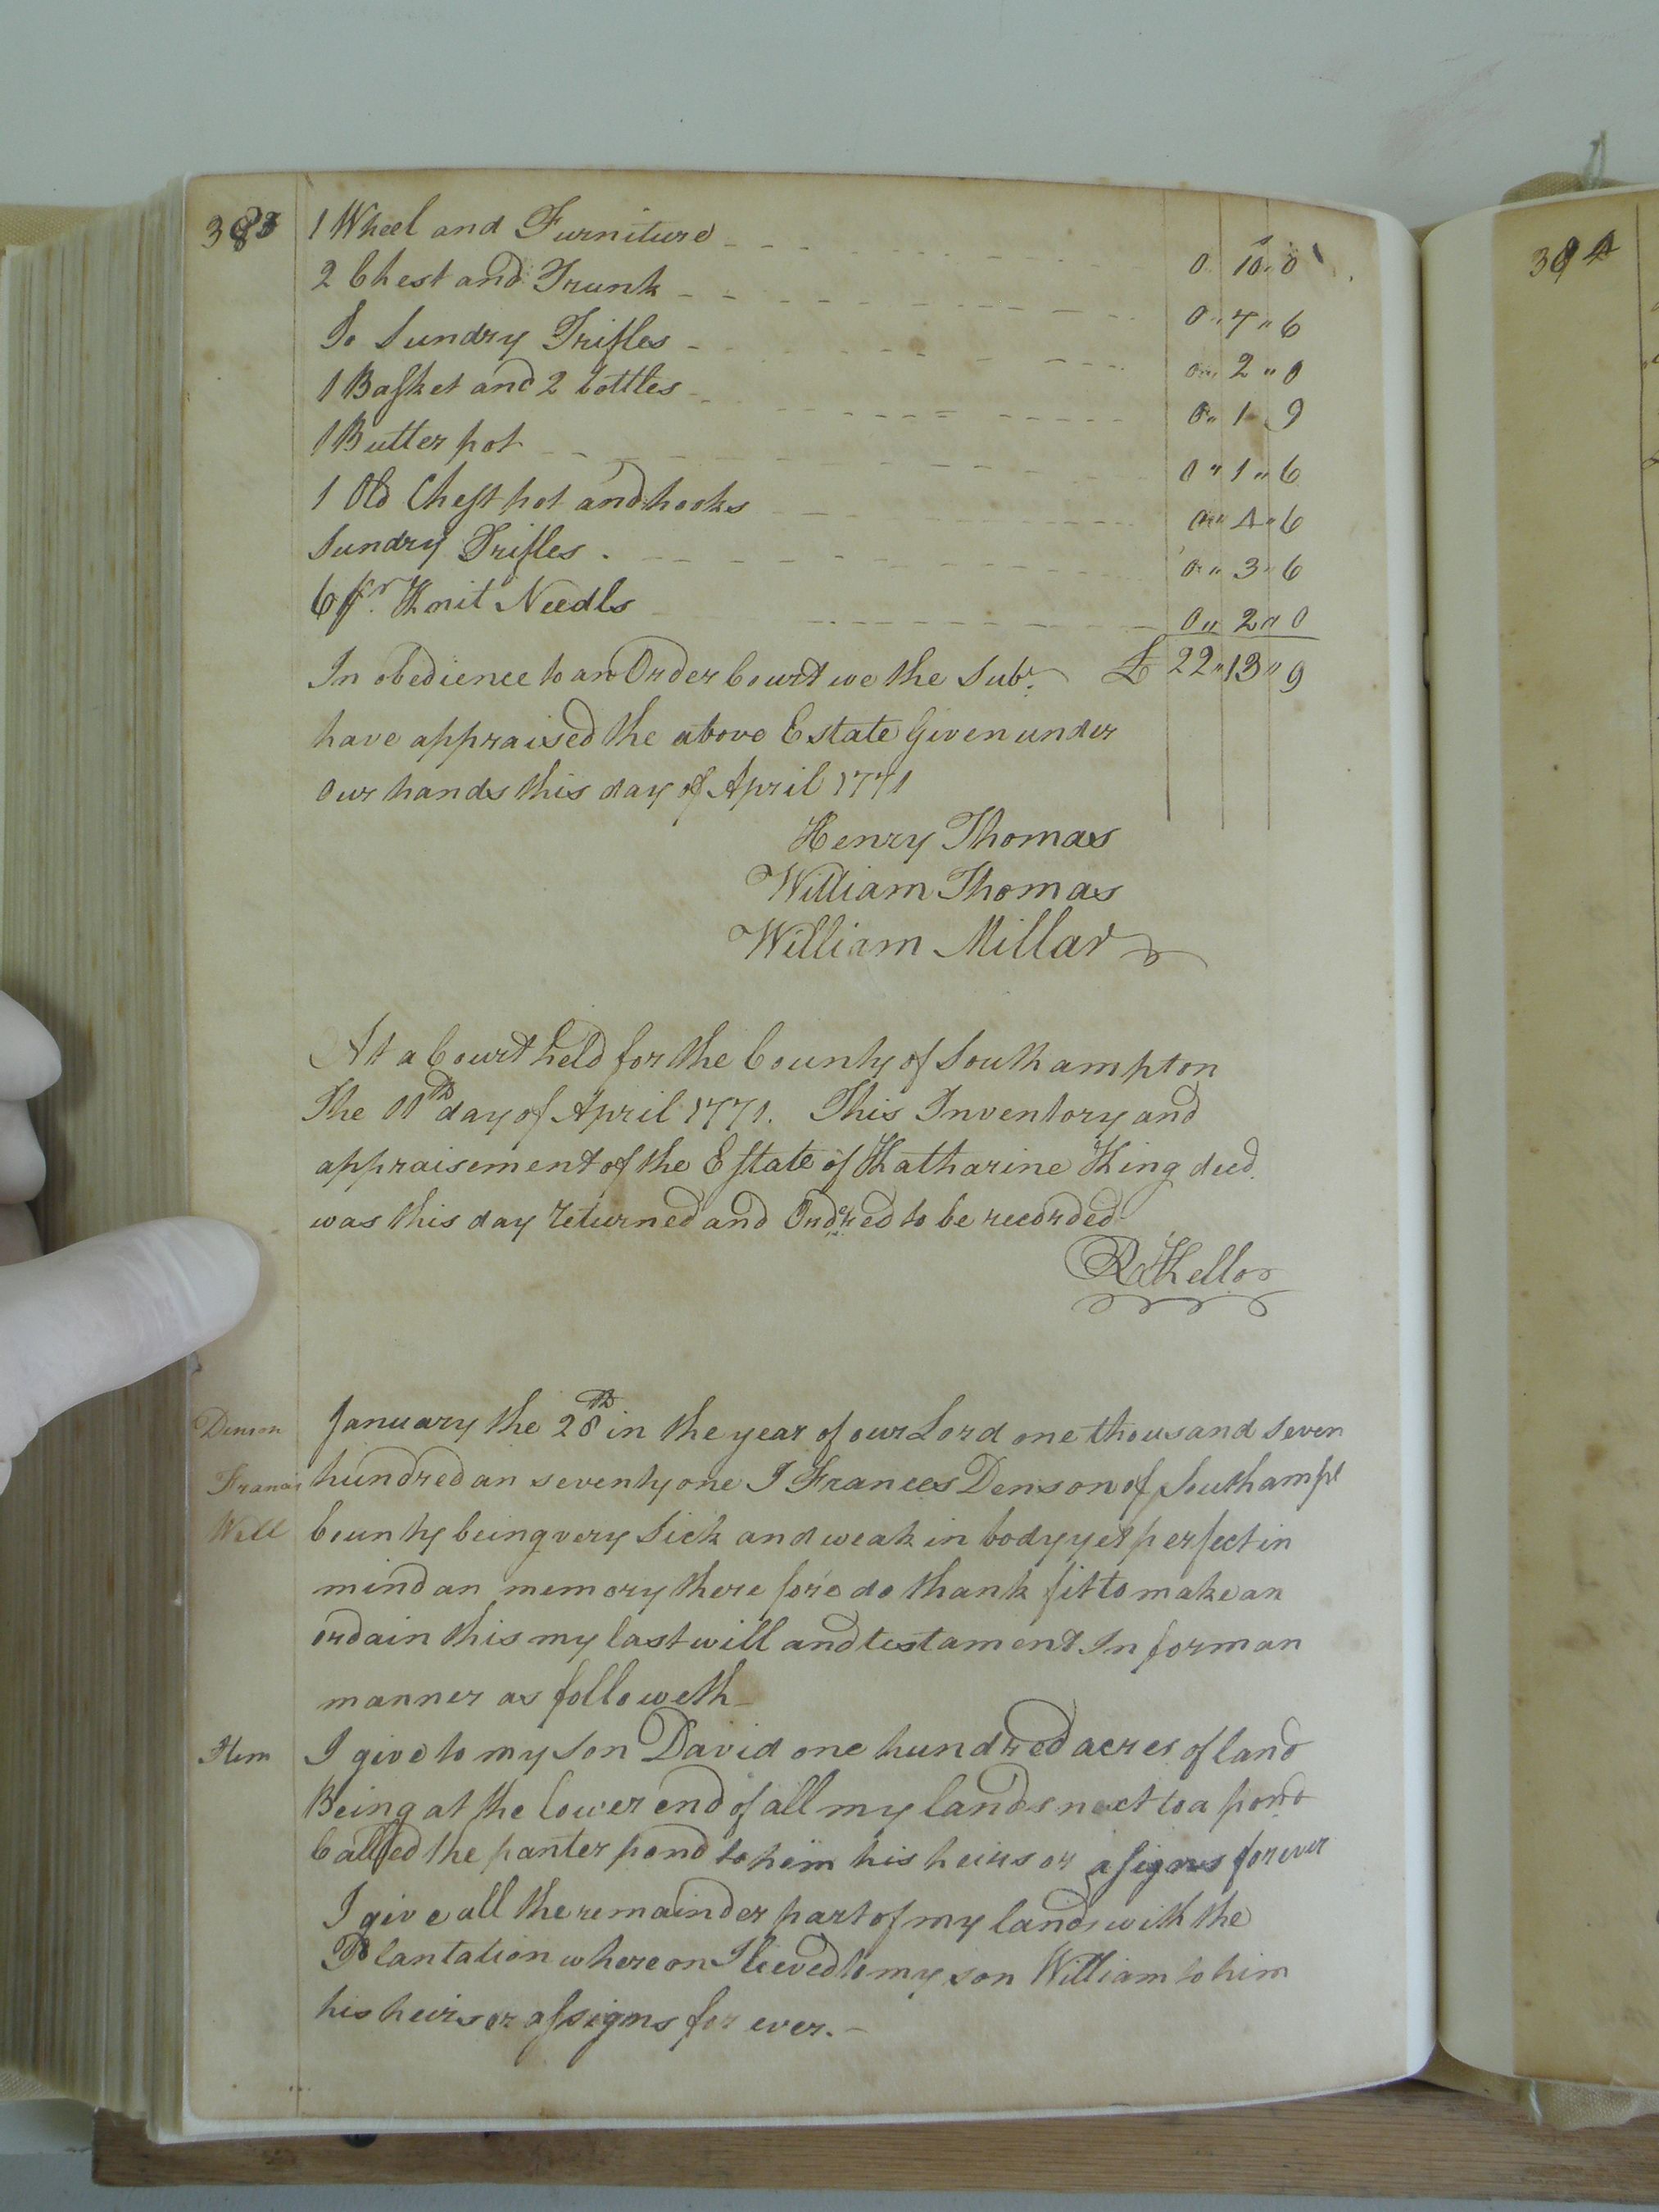 383
1 Wheel and Furniture 0 10 0
2 Chest and Trunk 0 7 6
To Sundry Trifles 0 2 0
1 Basket and 2 bottles 0 1 9
1 Butter pot 0 1 6
1 Old Chest pot and hooks 0 4 6
Sundry Trifles 0 3 6
6 pr. Knit Needls 0 2 0
In obedience to an Order Court we the Subr. £ 22 13 9
have appraised the above Estate Given under
Our hands this day of April 1771
Henry Thomas
William Thomas
William Millar
At a Court held for the County of Southampton
The 11th day of April 1771. This Inventory and
appraisement of the Estate of Katharine King decd.
was this day returned and Ordered to be recorded
R Kello
Denson
Francis
Will
January the 28th in the year of our Lord one thousand seven
hundred an seventy one I Frances Denson of Southampt
County being very Sick and weak in body yet perfect in
mind an memory there fore do thank fit to make an
ordain this my last will and testament In form an
manner as followeth
Item I give to my Son David one hundred acres of land
Being at the lower end of all my lands next to a pond
Called the panter pond to him his heirs or asigns forever
I give all the remainder part of my lands with the
Plantation whereon I lieved to my son William to him
his heirs or assigns for ever.
384